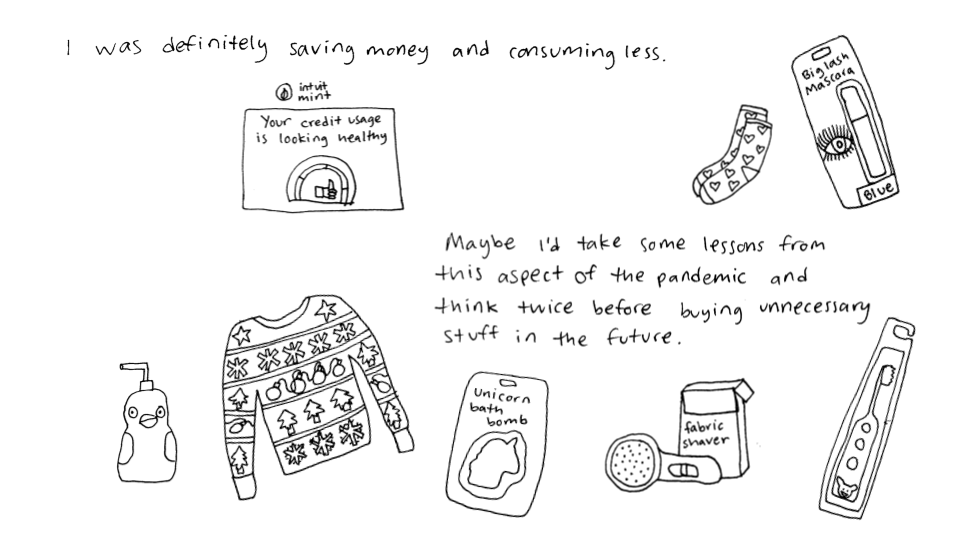 I was definitely saving money and consuming less.
intuit
mint
Your credit usage
is looking healthy
Big lash
Mascara
Blue
Maybe I'd take some lessons from
this aspect of the pandemic and
think twice before buying unnecessary
stuff in the future.
Unicorn
bath
bomb
fabric
shaver